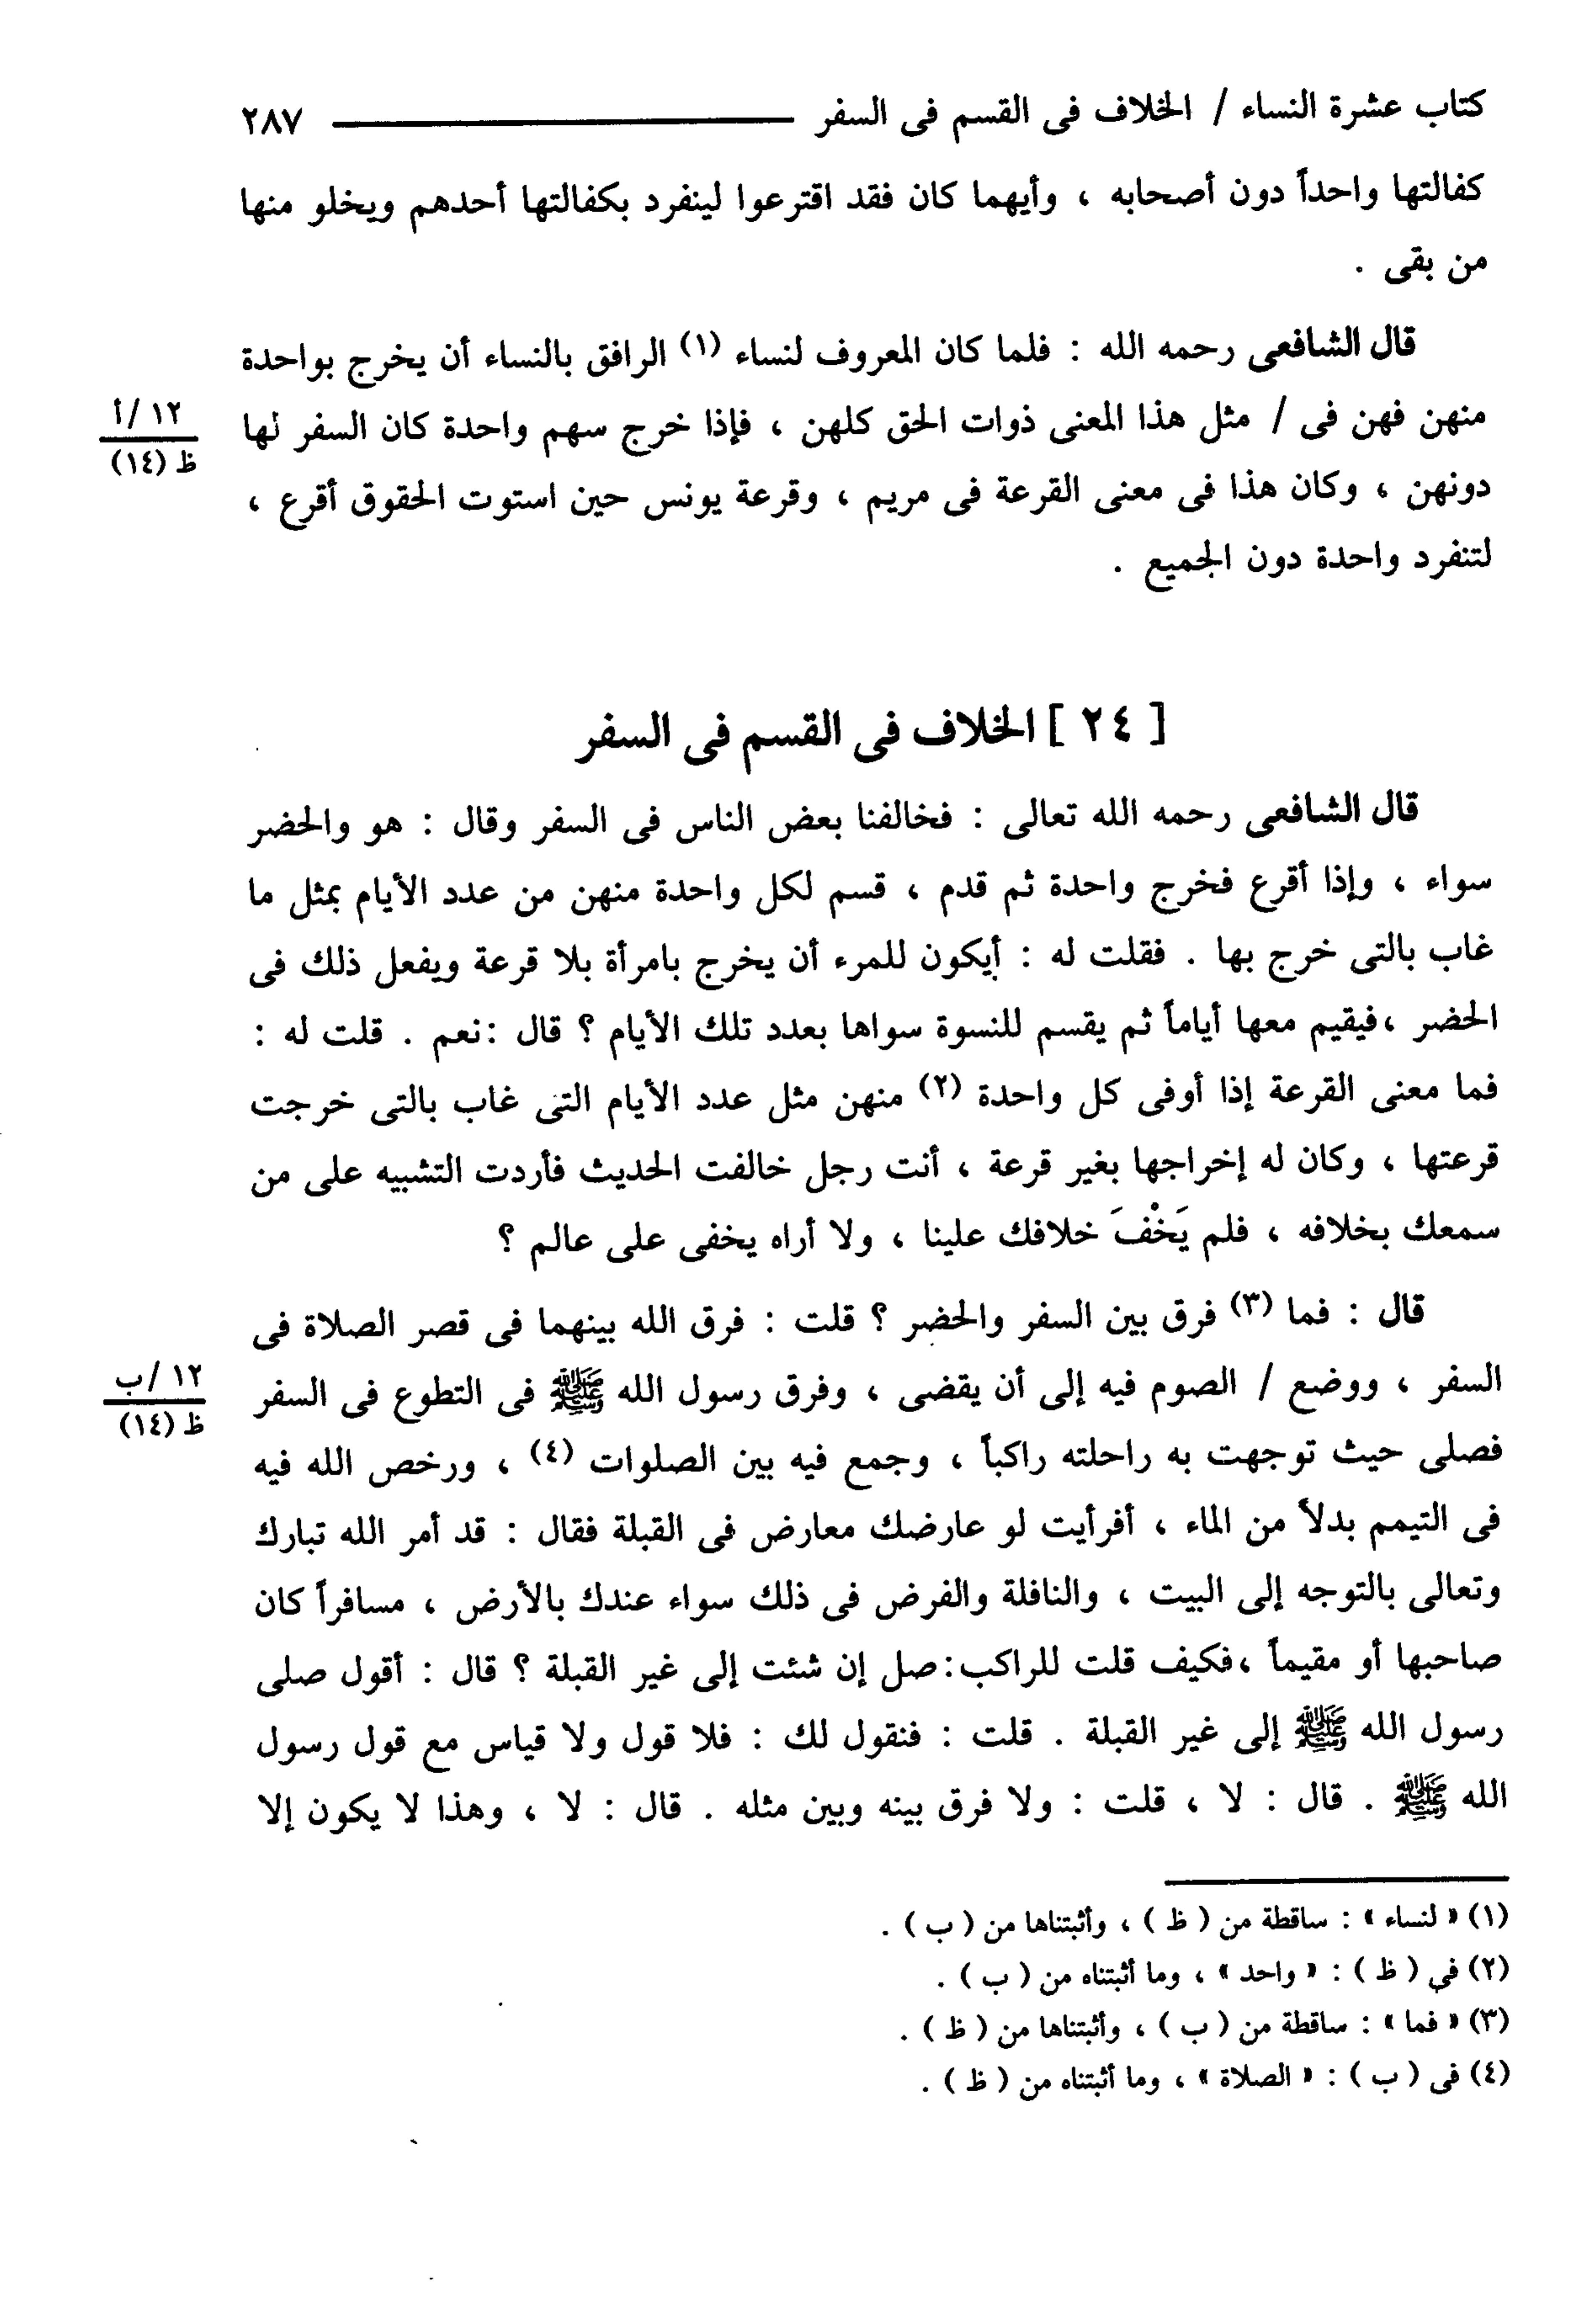 كتاب عشرة النساء / الخلاف فى القسم فى السفر ٢٨٧
كفالتها واحداً دون أصحابه ، وأيهما كان فقد اقترعوا لينفرد بكفالتها أحدهم ويخلو منها
من بقى .
قال الشافعى رحمه الله : فلما كان المعروف لنساء (١) الرافق بالنساء أن يخرج بواحدة
منهن فهن فى / مثل هذا المعنى ذوات الحق كلهن ، فإذا خرج سهم واحدة كان السفر لها
١٢ /أ
ظ (١٤)
دونهن ، وكان هذا فى معنى القرعة فى مريم ، وقرعة يونس حين استوت الحقوق أقرع ،
لتنفرد واحدة دون الجميع .
[ ٢٤ ] الخلاف فى القسم فى السفر
قال الشافعى رحمه الله تعالى : فخالفنا بعض الناس فى السفر وقال : هو والحضر
سواء ، وإذا أقرع فخرج واحدة ثم قدم ، قسم لكل واحدة منهن من عدد الأيام بمثل ما
غاب بالتى خرج بها . فقلت له : أيكون للمرء أن يخرج بامرأة بلا قرعة ويفعل ذلك فى
الحضر ،فيقيم معها أياماً ثم يقسم للنسوة سواها بعدد تلك الأيام ؟ قال :نعم . قلت له :
فما معنى القرعة إذا أوفى كل واحدة (٢) منهن مثل عدد الأيام التى غاب بالتى خرجت
قرعتها ، وكان له إخراجها بغير قرعة ، أنت رجل خالفت الحديث فأردت التشبيه على من
سمعك بخلافه ، فلم يَخْفَ خلافك علينا ، ولا أراه يخفى على عالم ؟
قال : فما (٣) فرق بين السفر والحضر ؟ قلت : فرق الله بينهما فى قصر الصلاة فى
السفر ، ووضع / الصوم فيه إلى أن يقضى ، وفرق رسول الله ﷺ فى التطوع فى السفر
١٢ /ب
ظ (١٤)
فصلى حيث توجهت به راحلته راكباً ، وجمع فيه بين الصلوات (٤) ، ورخص الله فيه
فى التيمم بدلاً من الماء ، أفرأيت لو عارضك معارض فى القبلة فقال : قد أمر الله تبارك
وتعالى بالتوجه إلى البيت ، والنافلة والفرض فى ذلك سواء عندك بالأرض ، مسافراً كان
صاحبها أو مقيماً ،فكيف قلت للراكب:صل إن شئت إلى غير القبلة ؟ قال : أقول صلى
رسول الله ﷺ إلى غير القبلة . قلت : فنقول لك : فلا قول ولا قياس مع قول رسول
الله ﷺ . قال : لا ، قلت : ولا فرق بينه وبين مثله . قال : لا ، وهذا لا يكون إلا
(١) « لنساء » : ساقطة من ( ظ ) ، وأثبتناها من ( ب ) .
(٢) فى ( ظ ) : « واحد » ، وما أثبتناه من ( ب ) .
(٣) « فما » : ساقطة من ( ب ) ، وأثبتناها من ( ظ ) .
(٤) فى ( ب ) : « الصلاة » ، وما أثبتناه من ( ظ ) .